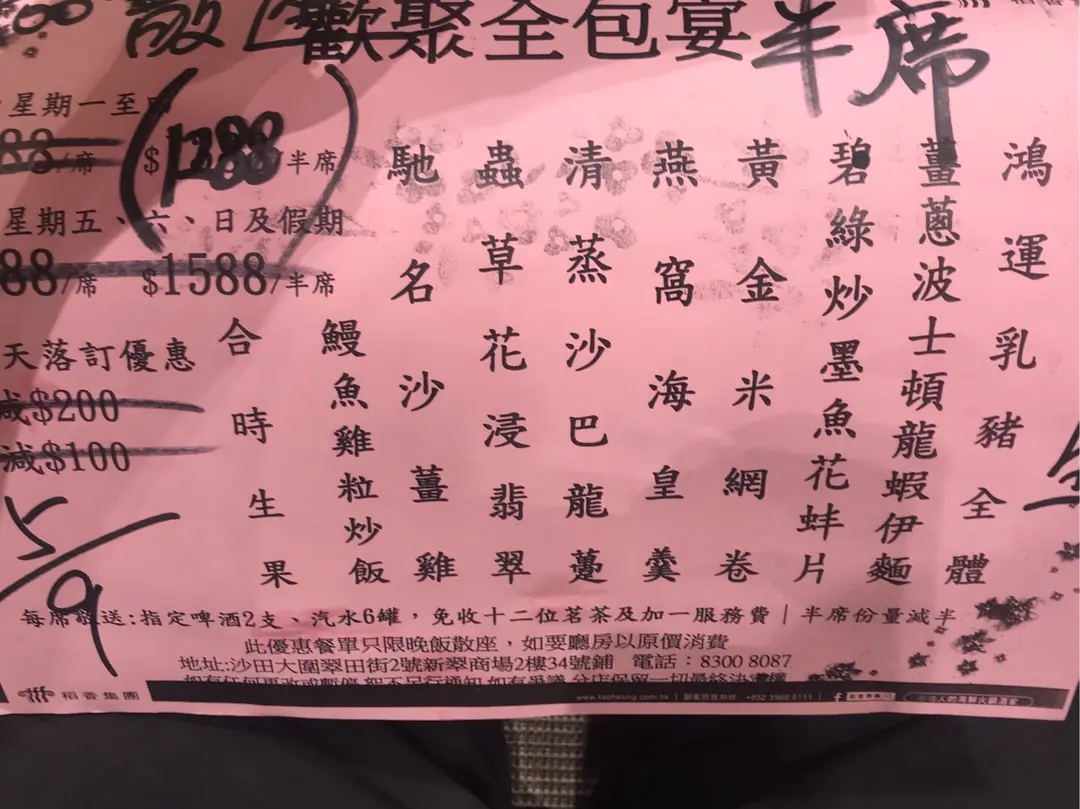 散 歡聚全包宴 半席
星期一至
88/席 $1288/半席
星期五、六、日及假期
88/席 $1588/半席
天落訂優惠
減$200
減$100
5/9
鴻運乳豬全體
薑蔥波士頓龍蝦伊麵
碧綠炒墨魚花蚌片
黃金米網卷
燕窩海皇羹
清蒸沙巴龍躉
蟲草花浸翡翠
馳名沙薑雞
鰻魚雞粒炒飯
合時生果
每席 送:指定啤酒2支、汽水6罐,免收十二位茗茶及加一服務費|半席份量減半
此優惠餐單只限晚飯散座,如要廳房以原價消費
地址:沙田大圍翠田街2號新翠商場2樓34號鋪 電話:8300 8087
如有任何更改或暫停 恕不另行通知 如有爭議 分店保留一切最終決定權
稻香集團 www.taoheung.com.hk | 顧客服務熱線:+852 3960 6111